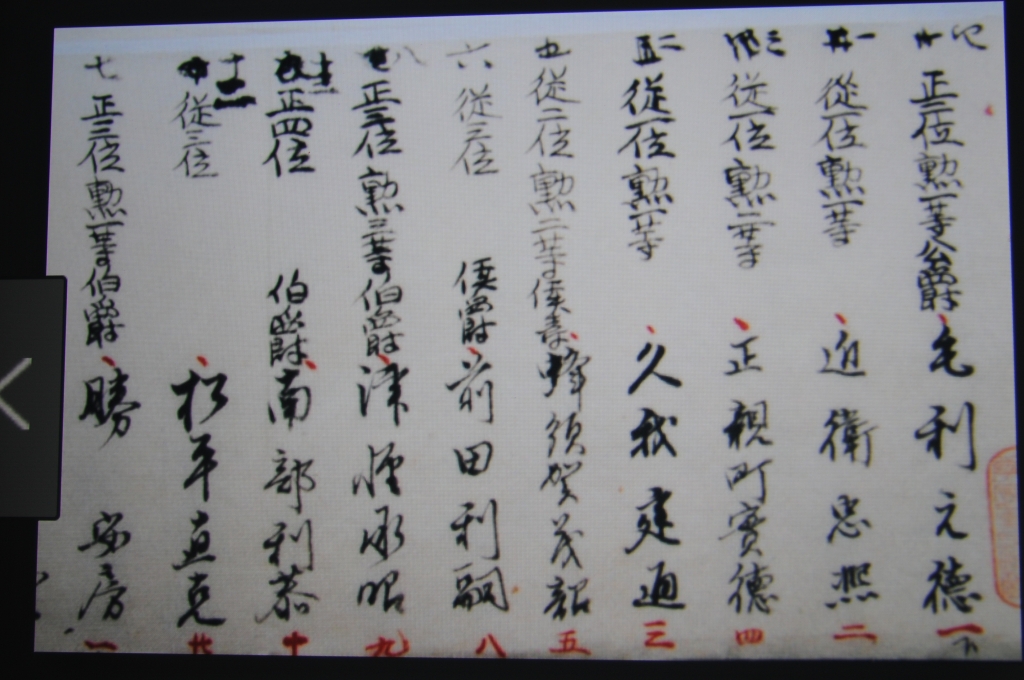 四 正二位勲一等公爵 毛利元徳 一
一 従一位勲一等 近衛忠熙 二
三 従一位勲二等 正親町實徳 四
二 従一位勲一等 久我建通 三
五 従二位勲二等侯爵 蜂須賀茂韶 五
六 従三位 侯爵 前田利嗣 八
八 正三位勲三等伯爵 津軽承昭 九
十一 正四位 伯爵 南部利恭 十
十二 従三位 松平直克 廿
七 正三位勲一等伯爵 勝安房 一